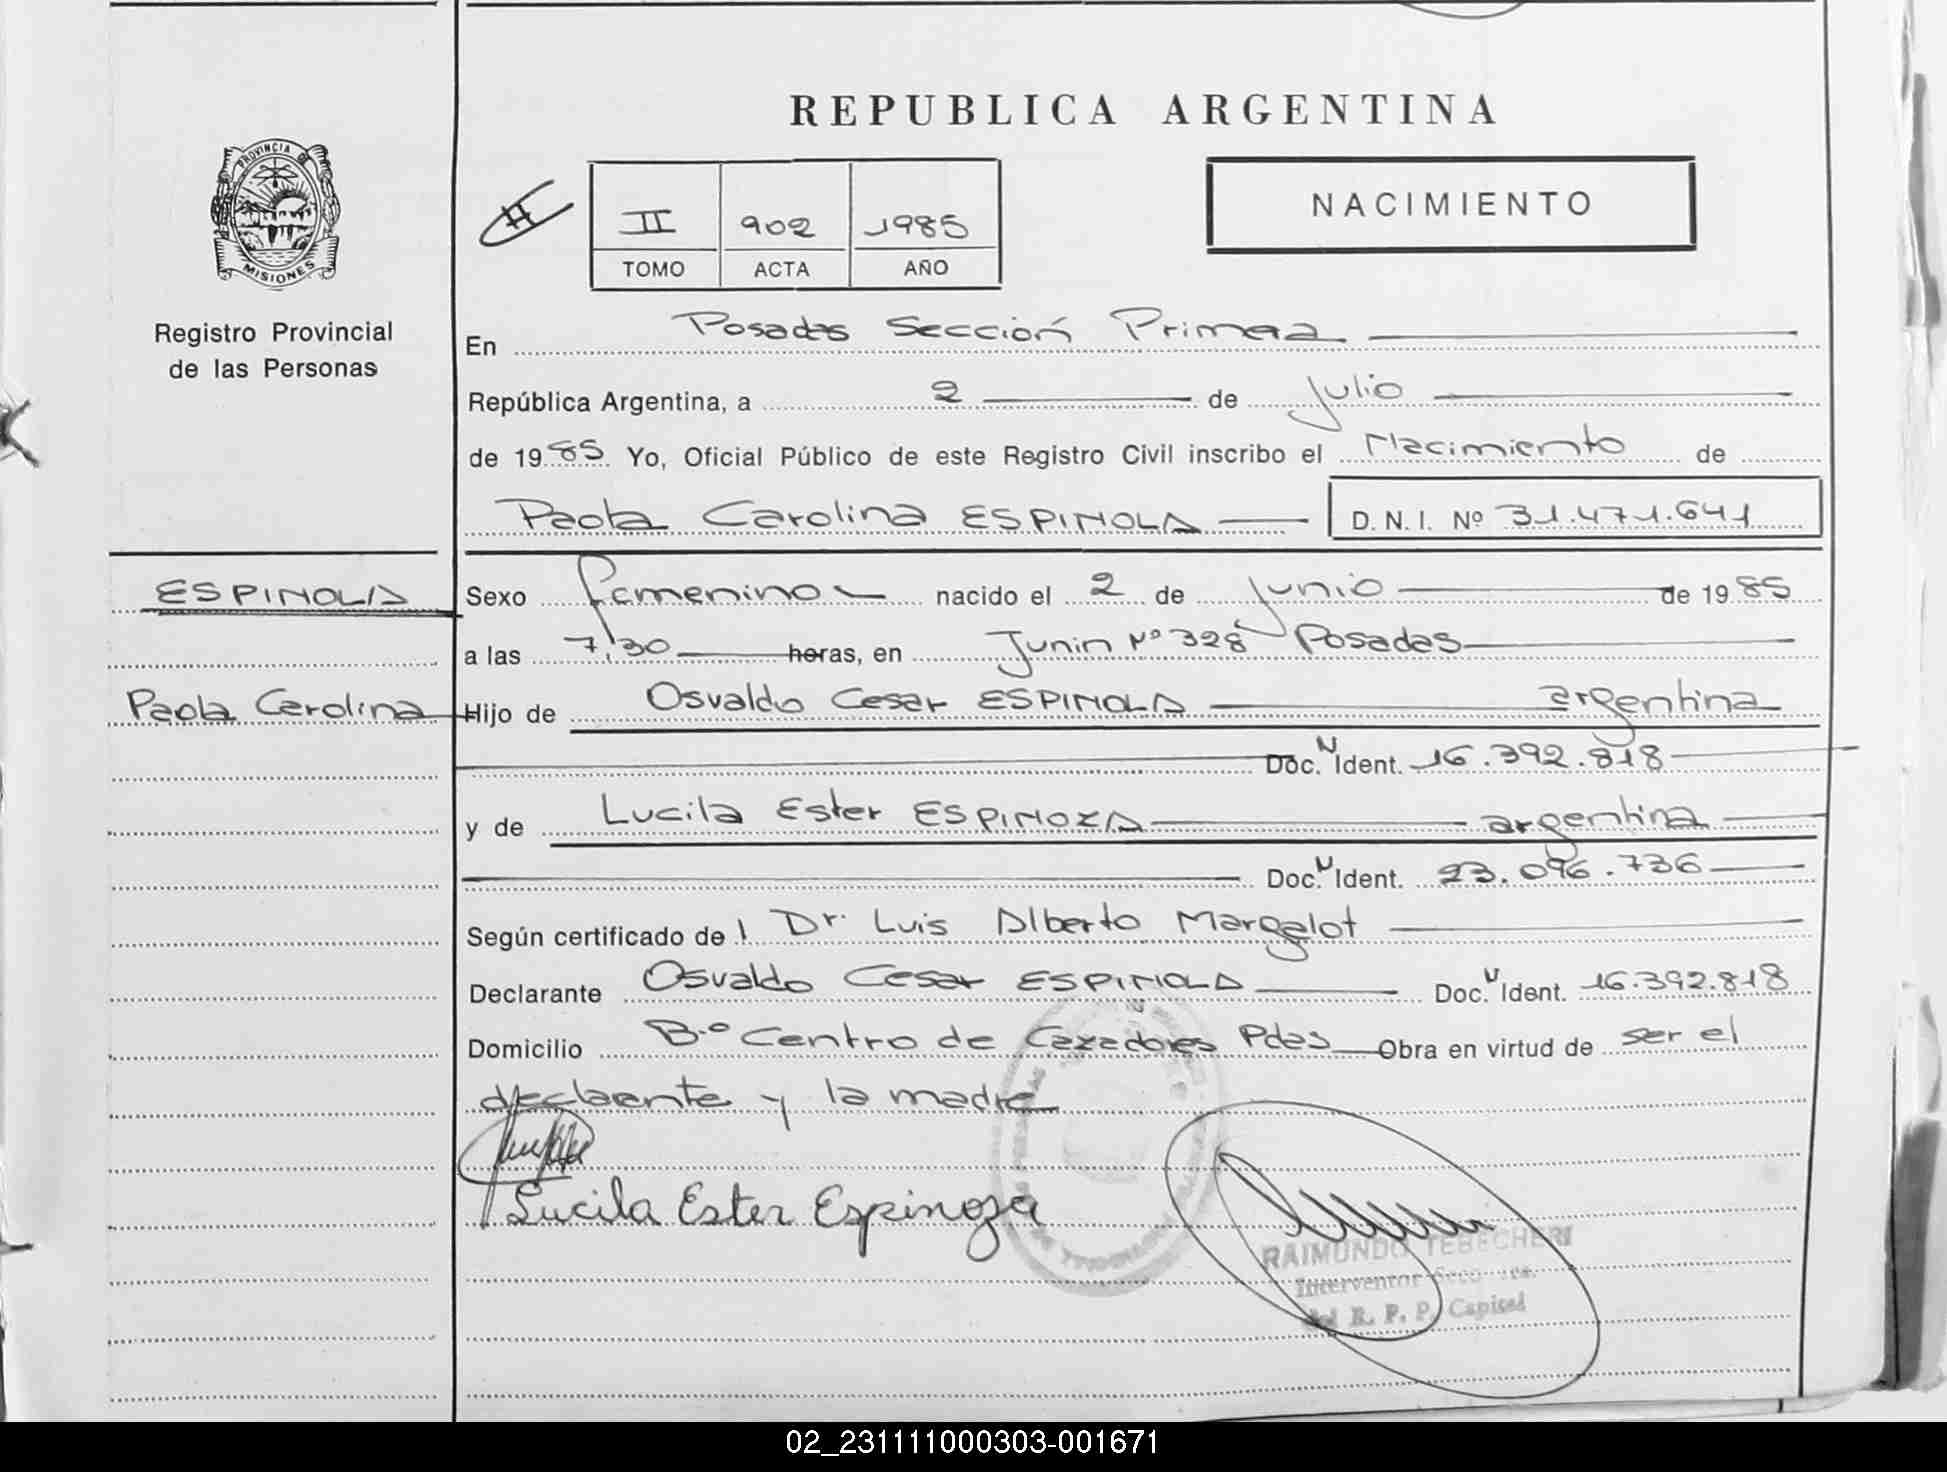 REPUBLICA ARGENTINA
PROVINCIA DE
MISIONES
Registro Provincial
de las Personas
II 902 1985
TOMO ACTA AÑO
NACIMIENTO
En Posadas Sección Primera
República Argentina, a 2 de Julio
de 1985 Yo, Oficial Público de este Registro Civil inscribo el Nacimiento de
Paola Carolina ESPINOLA D. N. I. Nº 31.471.641
ESPINOLA
Paola Carolina
Sexo femenino nacido el 2 de Junio de 1985
a las 7,30 horas, en Junin Nº 328 Posadas
Hijo de Osvaldo Cesar ESPINOLA argentina
Doc. N Ident. 16.392.818
y de Lucila Ester ESPINOZA argentina
Doc. N Ident. 23.096.736
Según certificado de l Dr. Luis Alberto Margalot
Declarante Osvaldo Cesar ESPINOLA Doc. N Ident. 16.392.818
Domicilio B.º Centro de Cazadores Pdas Obra en virtud de ser el
declaente y la madre
Lucila Ester Espinoza
RAIMUNDO TEBECHERI
Interventor
del R. P. P. Capital
02_231111000303-001671